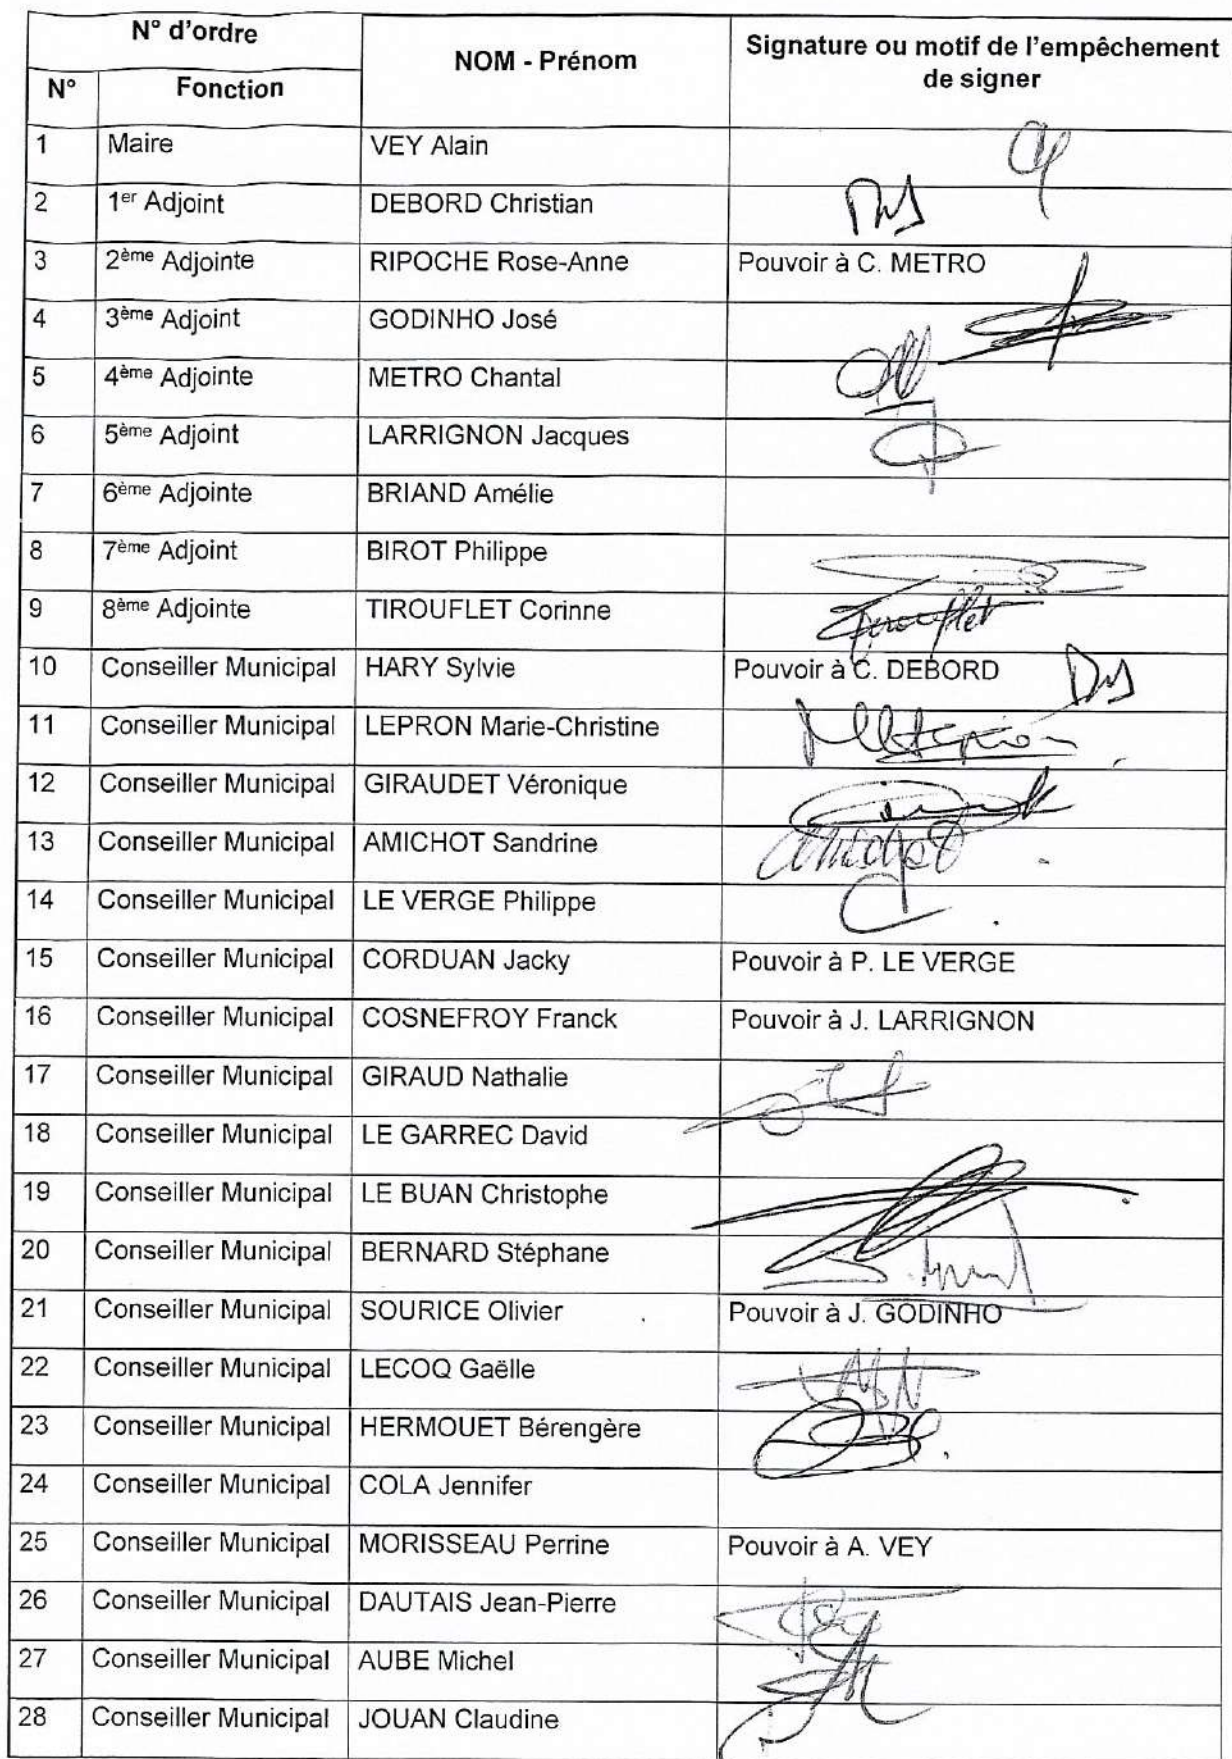 N° d'ordre
NOM - Prénom
Signature ou motif de l'empêchement
de signer
N° Fonction
1 Maire VEY Alain
2 1er Adjoint DEBORD Christian
3 2ème Adjointe RIPOCHE Rose-Anne Pouvoir à C. METRO
4 3ème Adjoint GODINHO José
5 4ème Adjointe METRO Chantal
6 5ème Adjoint LARRIGNON Jacques
7 6ème Adjointe BRIAND Amélie
8 7ème Adjoint BIROT Philippe
9 8ème Adjointe TIROUFLET Corinne Tirouflet
10 Conseiller Municipal HARY Sylvie Pouvoir à C. DEBORD
11 Conseiller Municipal LEPRON Marie-Christine
12 Conseiller Municipal GIRAUDET Véronique
13 Conseiller Municipal AMICHOT Sandrine
14 Conseiller Municipal LE VERGE Philippe
15 Conseiller Municipal CORDUAN Jacky Pouvoir à P. LE VERGE
16 Conseiller Municipal COSNEFROY Franck Pouvoir à J. LARRIGNON
17 Conseiller Municipal GIRAUD Nathalie
18 Conseiller Municipal LE GARREC David
19 Conseiller Municipal LE BUAN Christophe
20 Conseiller Municipal BERNARD Stéphane
21 Conseiller Municipal SOURICE Olivier Pouvoir à J. GODINHO
22 Conseiller Municipal LECOQ Gaëlle
23 Conseiller Municipal HERMOUET Bérengère
24 Conseiller Municipal COLA Jennifer
25 Conseiller Municipal MORISSEAU Perrine Pouvoir à A. VEY
26 Conseiller Municipal DAUTAIS Jean-Pierre
27 Conseiller Municipal AUBE Michel
28 Conseiller Municipal JOUAN Claudine